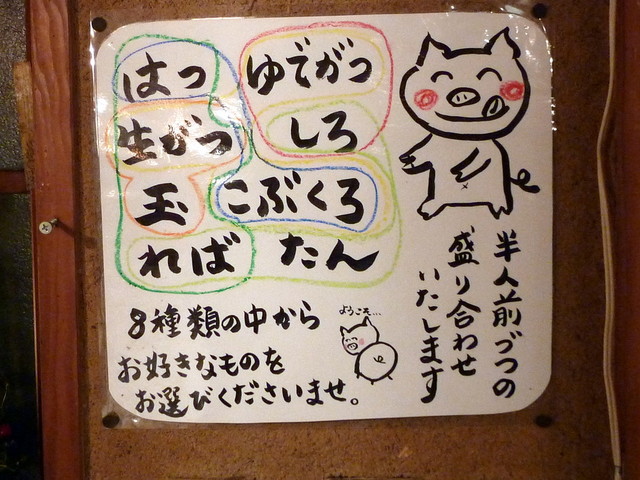 はつ
ゆでがつ
生がつ
しろ
玉
こぶくろ
れば
たん
半人前づつの
盛り合わせ
いたします
8種類の中から
お好きなものを
お選びくださいませ。
ようこそ…